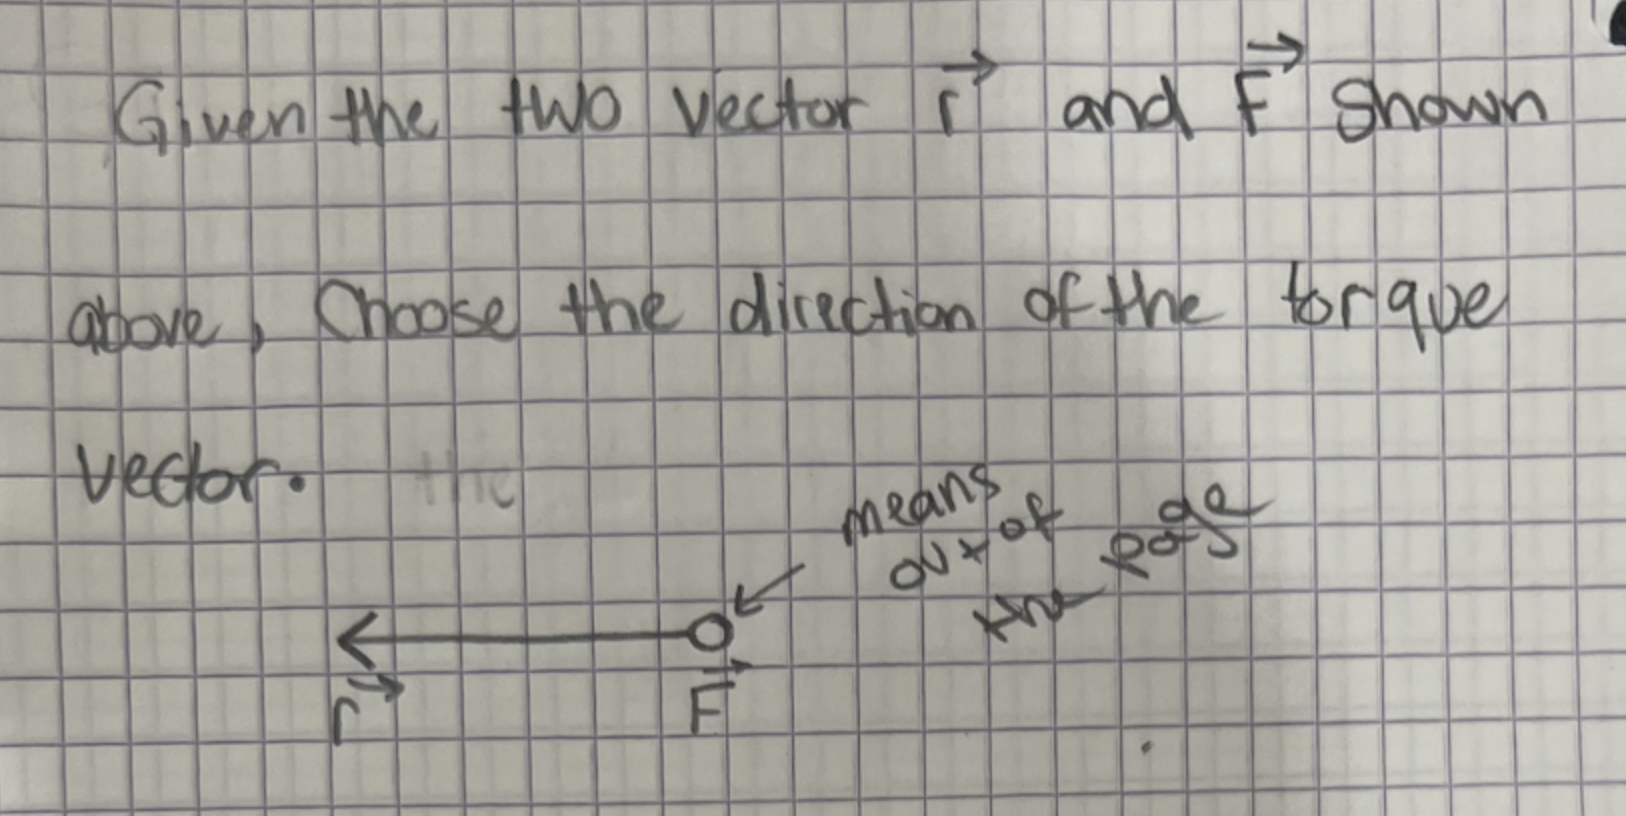 Given the two vector r and F shown
above, Choose the direction of the torque
vector. the
means
out of
the page
r
F